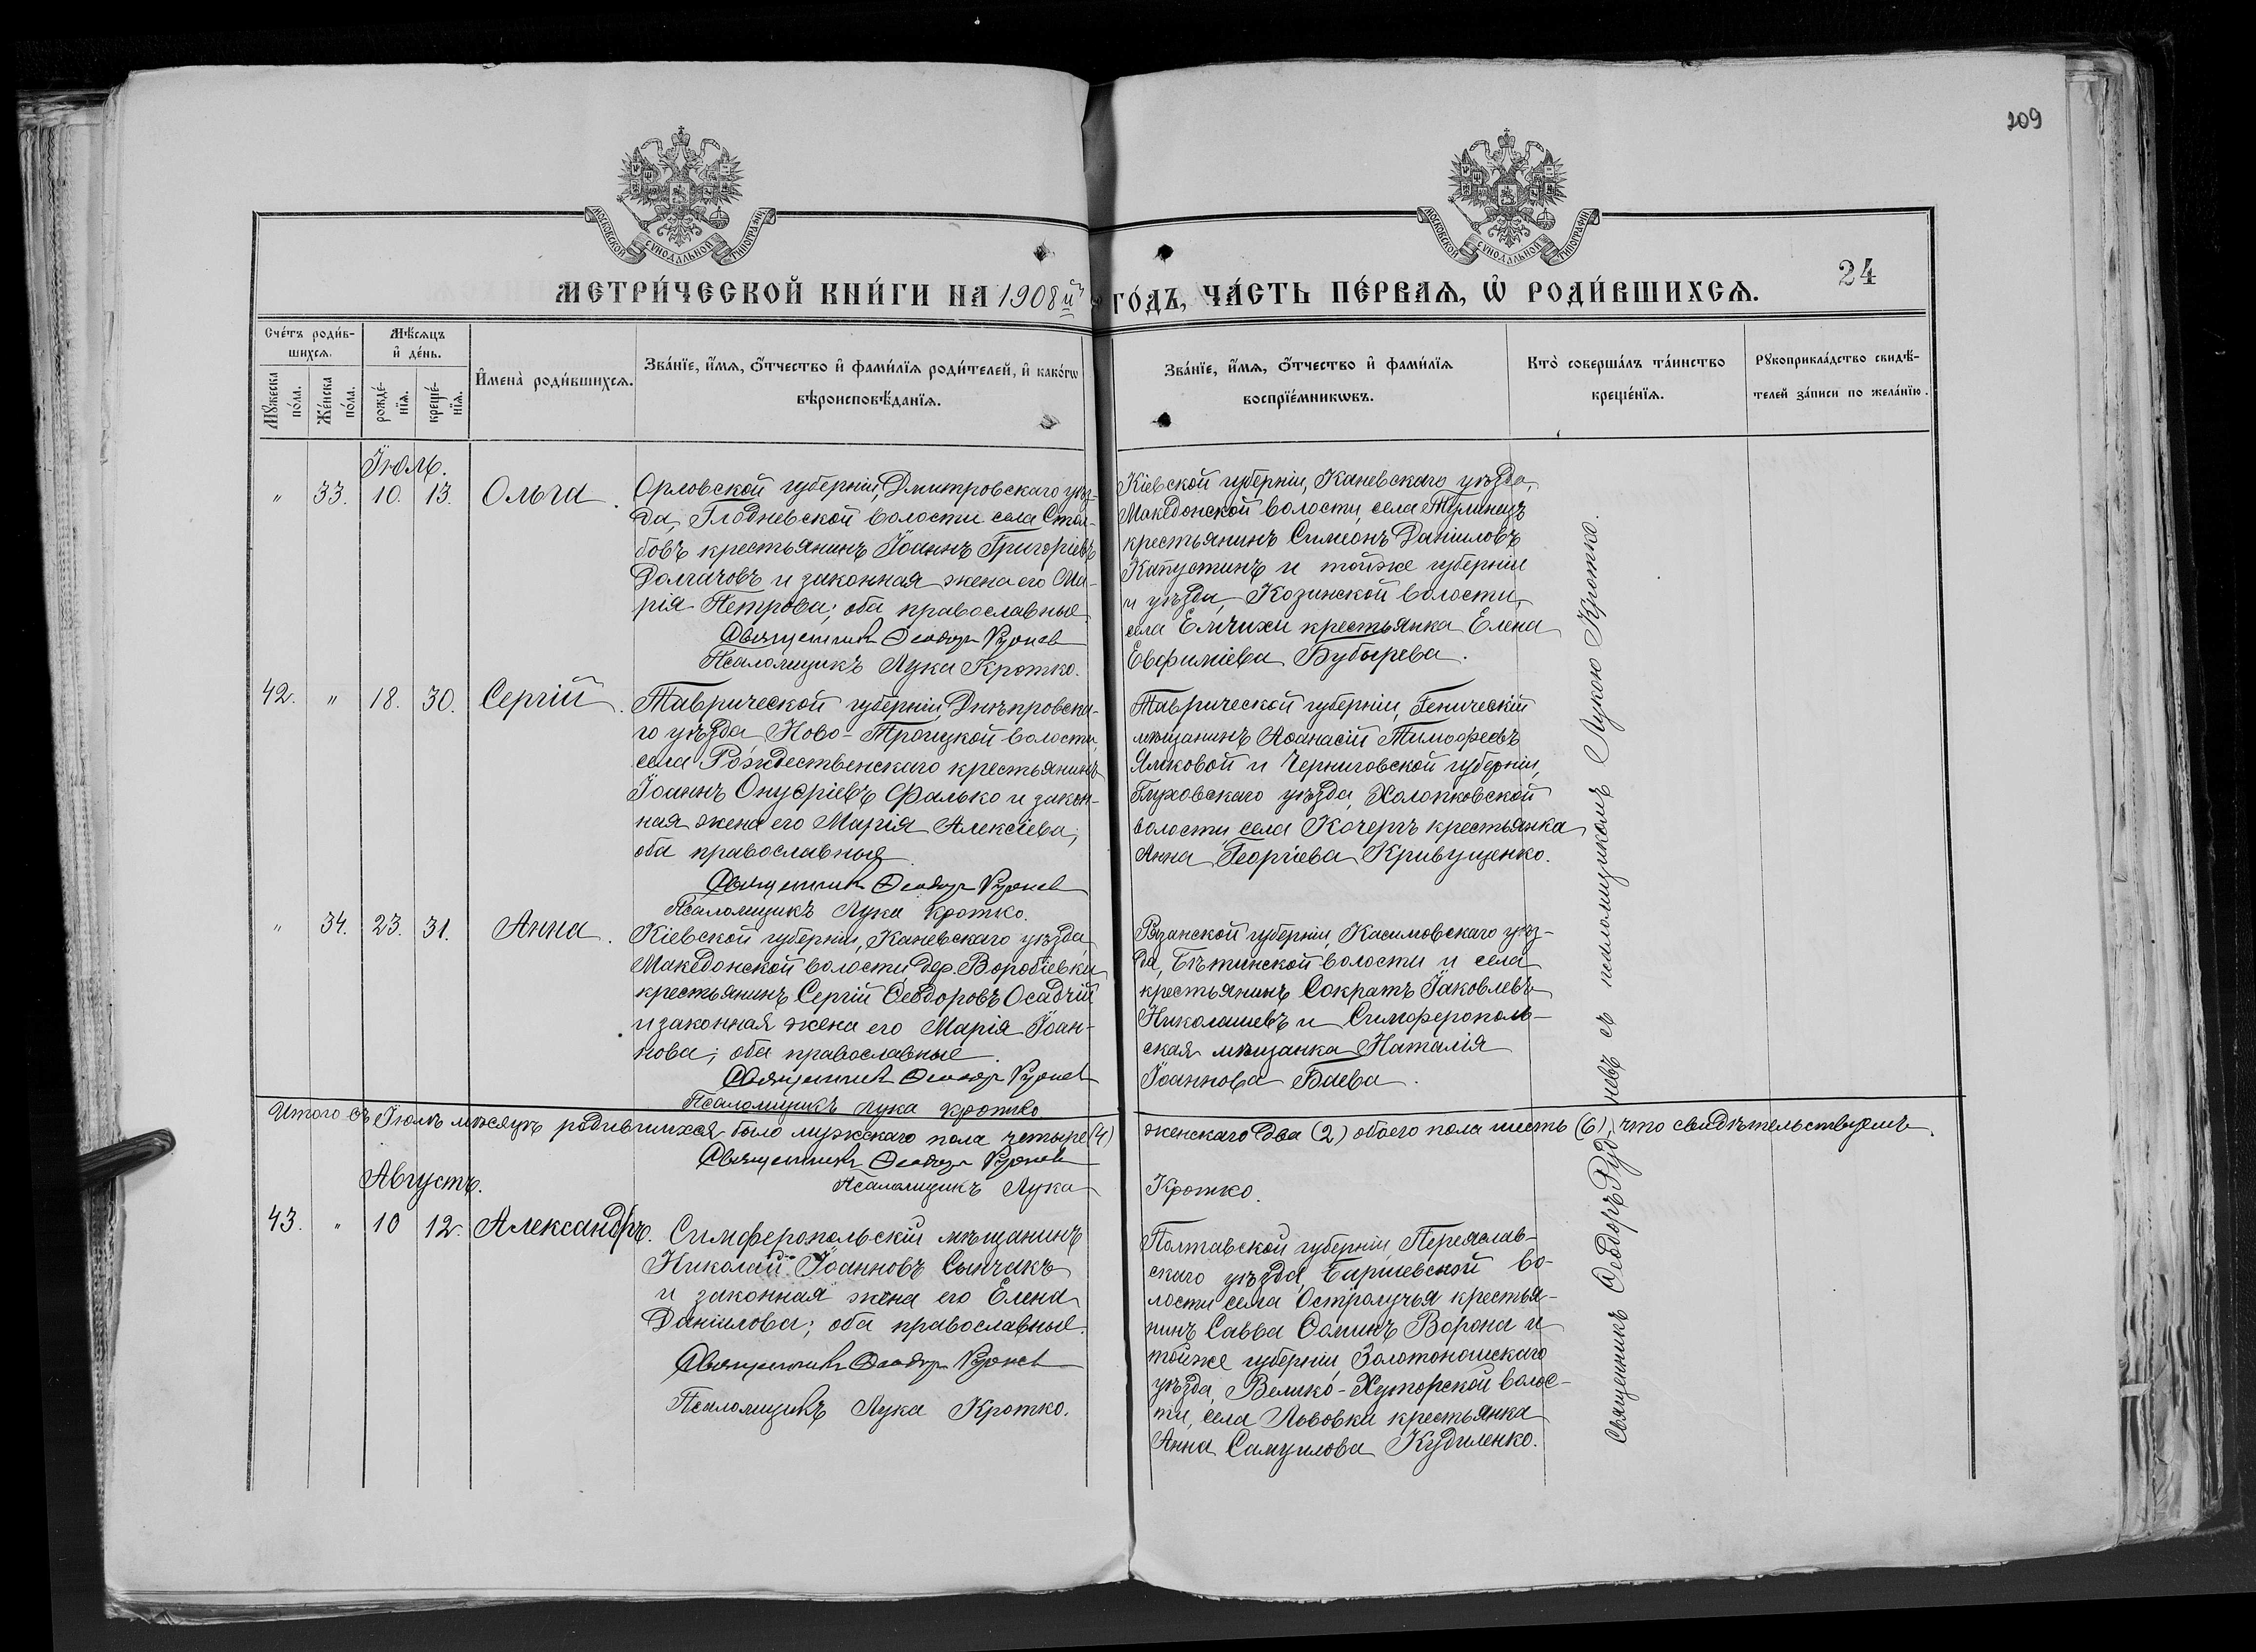 209
МОСКОВСКОЙ СѴНОДАЛЬНОЙ ТИПОГРАФІИ
МОСКОВСКОЙ СѴНОДАЛЬНОЙ ТИПОГРАФІИ
МЕТРИ́ЧЕСКОЙ КНИ́ГИ НА 1908й ГО́ДЪ, ЧА́СТЬ ПЕ́РВАѦ, Ѡ РОДИ́ВШИХСѦ.
24
Сче́тъ роди́в-
шихсѧ.
Мѣ́сѧцъ
и де́нь.
Мꙋ́жеска
по́ла.
Же́нска
по́ла.
рожде́-
нїѧ.
креще́-
нїѧ.
И҆мена̀ роди́вшихсѧ.
Зва́нїе, и҆́мѧ, ѻ҆́тчество и҆ фами́лїѧ роди́телей, и҆ како́гѡ
вѣроисповѣ́данїѧ.
Зва́нїе, и҆́мѧ, ѻ҆́тчество и҆ фами́лїѧ
воспрїе́мникѡвъ.
Кто̀ соверша́лъ та́инство
креще́нїѧ.
Рꙋкоприкла́дство свидѣ́-
телей за́писи по жела́нїю.
Іюль.
" 33. 10. 13. Ольга.
Орловской губерніи, Дмитровскаго уѣз-
да, Глодневской волости села Стол-
бовъ крестьянинъ Іоаннъ Григоріевъ
Долгачовъ и законная жена его Ма-
рія Петрова; оба православные
Священникъ Ѳеодоръ Руднев
Псаломщикъ Лука Кротко.
Кіевской губерніи, Каневскаго уѣзда,
Македонской волости, села Тулинецъ
крестьянинъ Симеонъ Даніиловъ
Капустинъ и тойже губерніи
и уѣзда, Козинской волости,
села Емчихи крестьянка Елена
Евфиміева Бубырева.
42. " 18. 30. Сергій.
Таврической губерніи, Днѣпровска-
го уѣзда Ново-Троицкой волости,
села Рождественскаго крестьянинъ
Іоаннъ Онуфріевъ Фалько и закон-
ная жена его Марія Алексіева;
оба православные.
Священникъ Ѳеодоръ Руднев
Псаломщикъ Лука Кротко.
Таврической губерніи, Геническій
мѣщанинъ Аѳанасій Тимоѳеевъ
Ямковой и Черниговской губерніи,
Глуховскаго уѣзда, Холопковской
волости села Кочергъ крестьянка
Анна Георгіева Кривущенко.
" 34. 23. 31. Анна.
Кіевской губерніи, Каневскаго уѣзда,
Македонской волости, дер. Воробіевки
крестьянинъ Сергій Ѳеодоровъ Осадчій
и законная жена его Марія Іоан-
нова; оба православные.
Священникъ Ѳеодоръ Руднев
Псаломщикъ Лука Кротко
Рязанской губерніи, Касимовскаго уѣз-
да, Бѣтинской волости и села
крестьянинъ Сократъ Іаковлевъ
Николашевъ и Симферополь-
ская мѣщанка Наталія
Іоаннова Баева.
Итого въ Іюлѣ мѣсяцѣ родившихся было мужскаго пола четыре (4) женскаго два (2) обоего пола шесть (6), что свидѣтельствуемъ.
Священникъ Ѳеодоръ Руднев
Псаломщикъ Лука Кротко.
Августъ.
43. " 10 12. Александръ.
Симферопольскій мѣщанинъ
Николай Іоанновъ Сынчакъ
и законная жена его Елена
Даніилова; оба православные.
Священникъ Ѳеодоръ Руднев
Псаломщикъ Лука Кротко.
Полтавской губерніи, Переяслав-
скаго уѣзда, Баришевской во-
лости села Остролучья крестья-
нинъ Савва Ѳоминъ Ворона и
тойже губерніи Золотоношскаго
уѣзда, Велико-Хуторской волос-
ти, села Львовки крестьянка
Анна Самуилова Кудиленко.
Священникъ Ѳеодоръ Рудневъ съ псаломщикомъ Лукою Кротко.